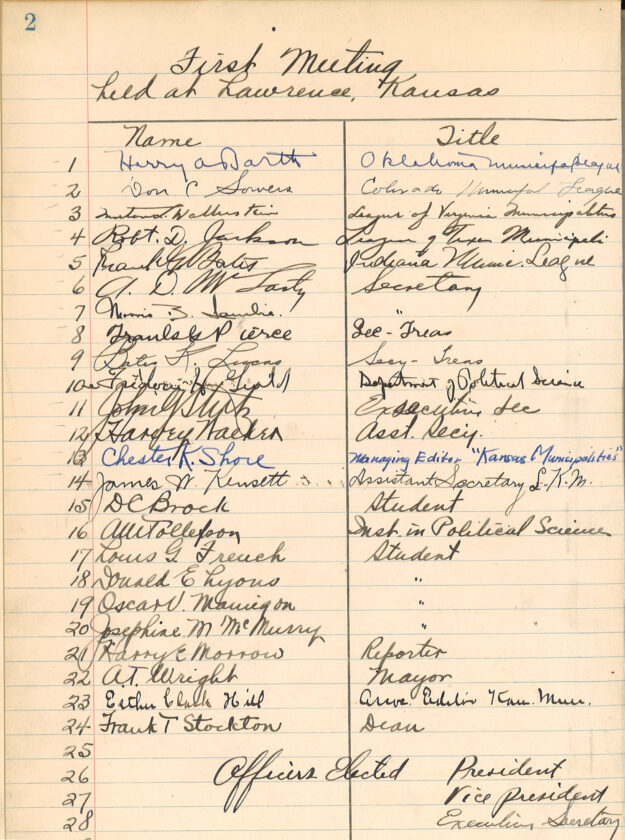 2
First Meeting
held at Lawrence, Kansas
Name Title
1 Harry A Barth Oklahoma Municipal League
2 Don C Sowers Colorado Municipal League
3 League of Virginia Municipalities
4 Robt. D. Jackson League of Texas Municipali
5 Frank G. Bates Indiana Munic. League
6 A. D. Mc Larty Secretary
7 Morris B.
8 Pierce Sec-Treas
9 Secy-Treas
10 Department of Political Science
11 John G. Stutz Executive Sec
12 Harvey Walker Asst. Secy.
13 Chester K. Shore Managing Editor "Kansas Municipalities"
14 James W. Kensett Assistant Secretary L.K.M.
15 D C Brock Student
16 Tollefson Inst. in Political Science
17 Louis G. French Student
18 Donald E Lyons "
19 Oscar V. "
20 Josephine M McMurry "
21 Harry E Morrow Reporter
22 A.T. Wright Mayor
23 Esther Clark Hill Editor Kan. Mun.
24 Frank T Stockton Dean
25
26 Officers Elected President
27 Vice President
28 Executive Secretary